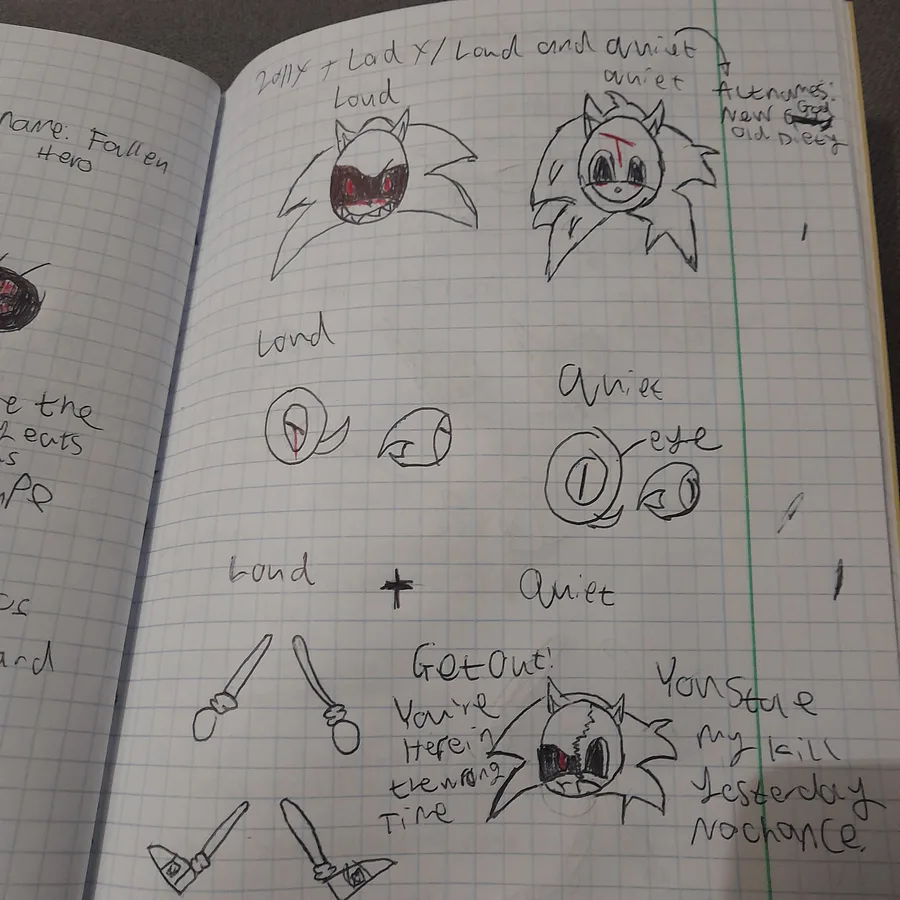 name: Fallen
Hero
e the
eats
s
and
Lolly + Lady / Loud and Quiet
Loud
Quiet
Altnames:
New God
old Diety
Loud
Quiet
eye
Loud + Quiet
Get Out!
You're
Here in
the wrong
Time
You Stole
my kill
Yesterday
No chance.